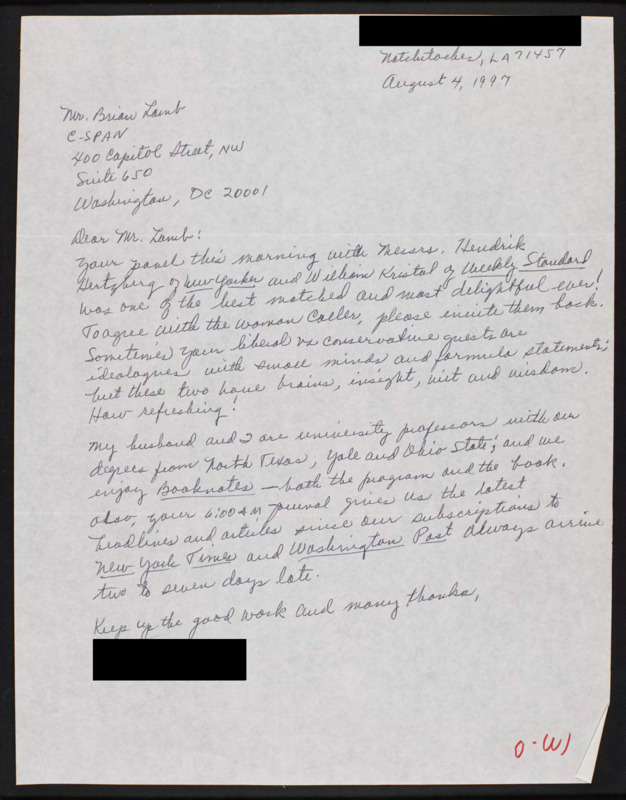 Natchitoches, LA 71457
August 4, 1997
Mr. Brian Lamb
C-SPAN
400 Capitol Street, NW
Suite 650
Washington, DC 20001
Dear Mr. Lamb:
Your panel this morning with Messrs. Hendrik
Hertzberg of New Yorker and William Kristol of Weekly Standard
was one of the best matched and most delightful ever!
To agree with the woman caller, please invite them back.
Sometimes your liberal vs conservative guests are
ideologues with small minds and formula statements;
but these two have brains, insight, wit and wisdom.
How refreshing!
My husband and I are university professors with our
degrees from North Texas, Yale and Ohio State; and we
enjoy Booknotes — both the program and the book.
Also, your 6:00 AM journal gives us the latest
headlines and articles since our subscriptions to
New York Times and Washington Post always arrive
two to seven days late.
Keep up the good work and many thanks,
O-W)